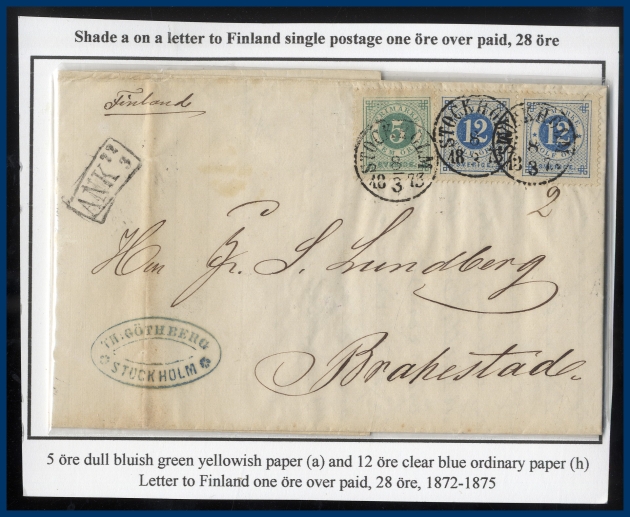 Shade a on a letter to Finland single postage one öre over paid, 28 öre
Finland
5
12
12
STOCKHOLM
8
3
18 73
ANK
2
Hrr Fr. S. Lundberg
Brahestad.
TH: GÖTHBERG
STOCKHOLM
5 öre dull bluish green yellowish paper (a) and 12 öre clear blue ordinary paper (h)
Letter to Finland one öre over paid, 28 öre, 1872-1875